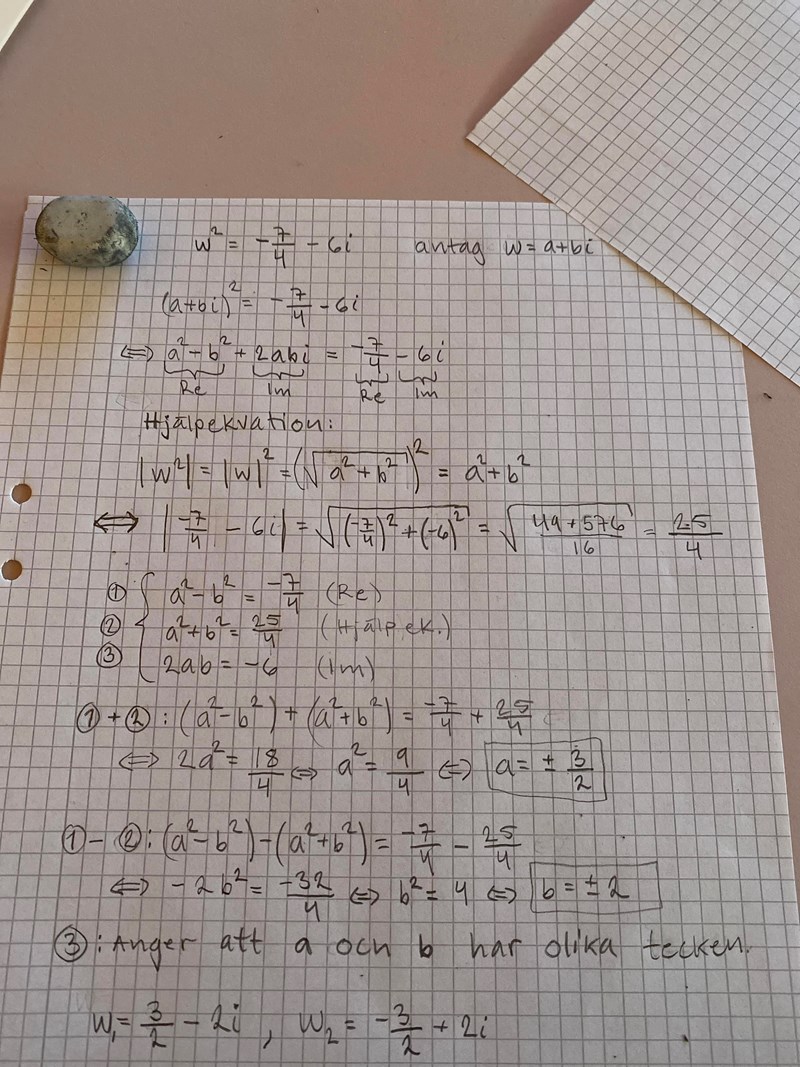 w² = -7/4 - 6i antag w = a+bi
(a+bi)² = -7/4 - 6i
⇔ a² - b² + 2abi = -7/4 - 6i
Re Im Re Im
Hjälpekvation:
|w²| = |w|² = (√(a² + b²))² = a² + b²
⇔ |-7/4 - 6i| = √((-7/4)² + (-6)²) = √((49 + 576)/16) = 25/4
① a² - b² = -7/4 (Re)
② a² + b² = 25/4 (Hjälp ek.)
③ 2ab = -6 (Im)
① + ② : (a² - b²) + (a² + b²) = -7/4 + 25/4
⇔ 2a² = 18/4 ⇔ a² = 9/4 ⇔ a = ± 3/2
① - ② : (a² - b²) - (a² + b²) = -7/4 - 25/4
⇔ -2b² = -32/4 ⇔ b² = 4 ⇔ b = ± 2
③ : Anger att a och b har olika tecken.
w₁ = 3/2 - 2i , w₂ = -3/2 + 2i